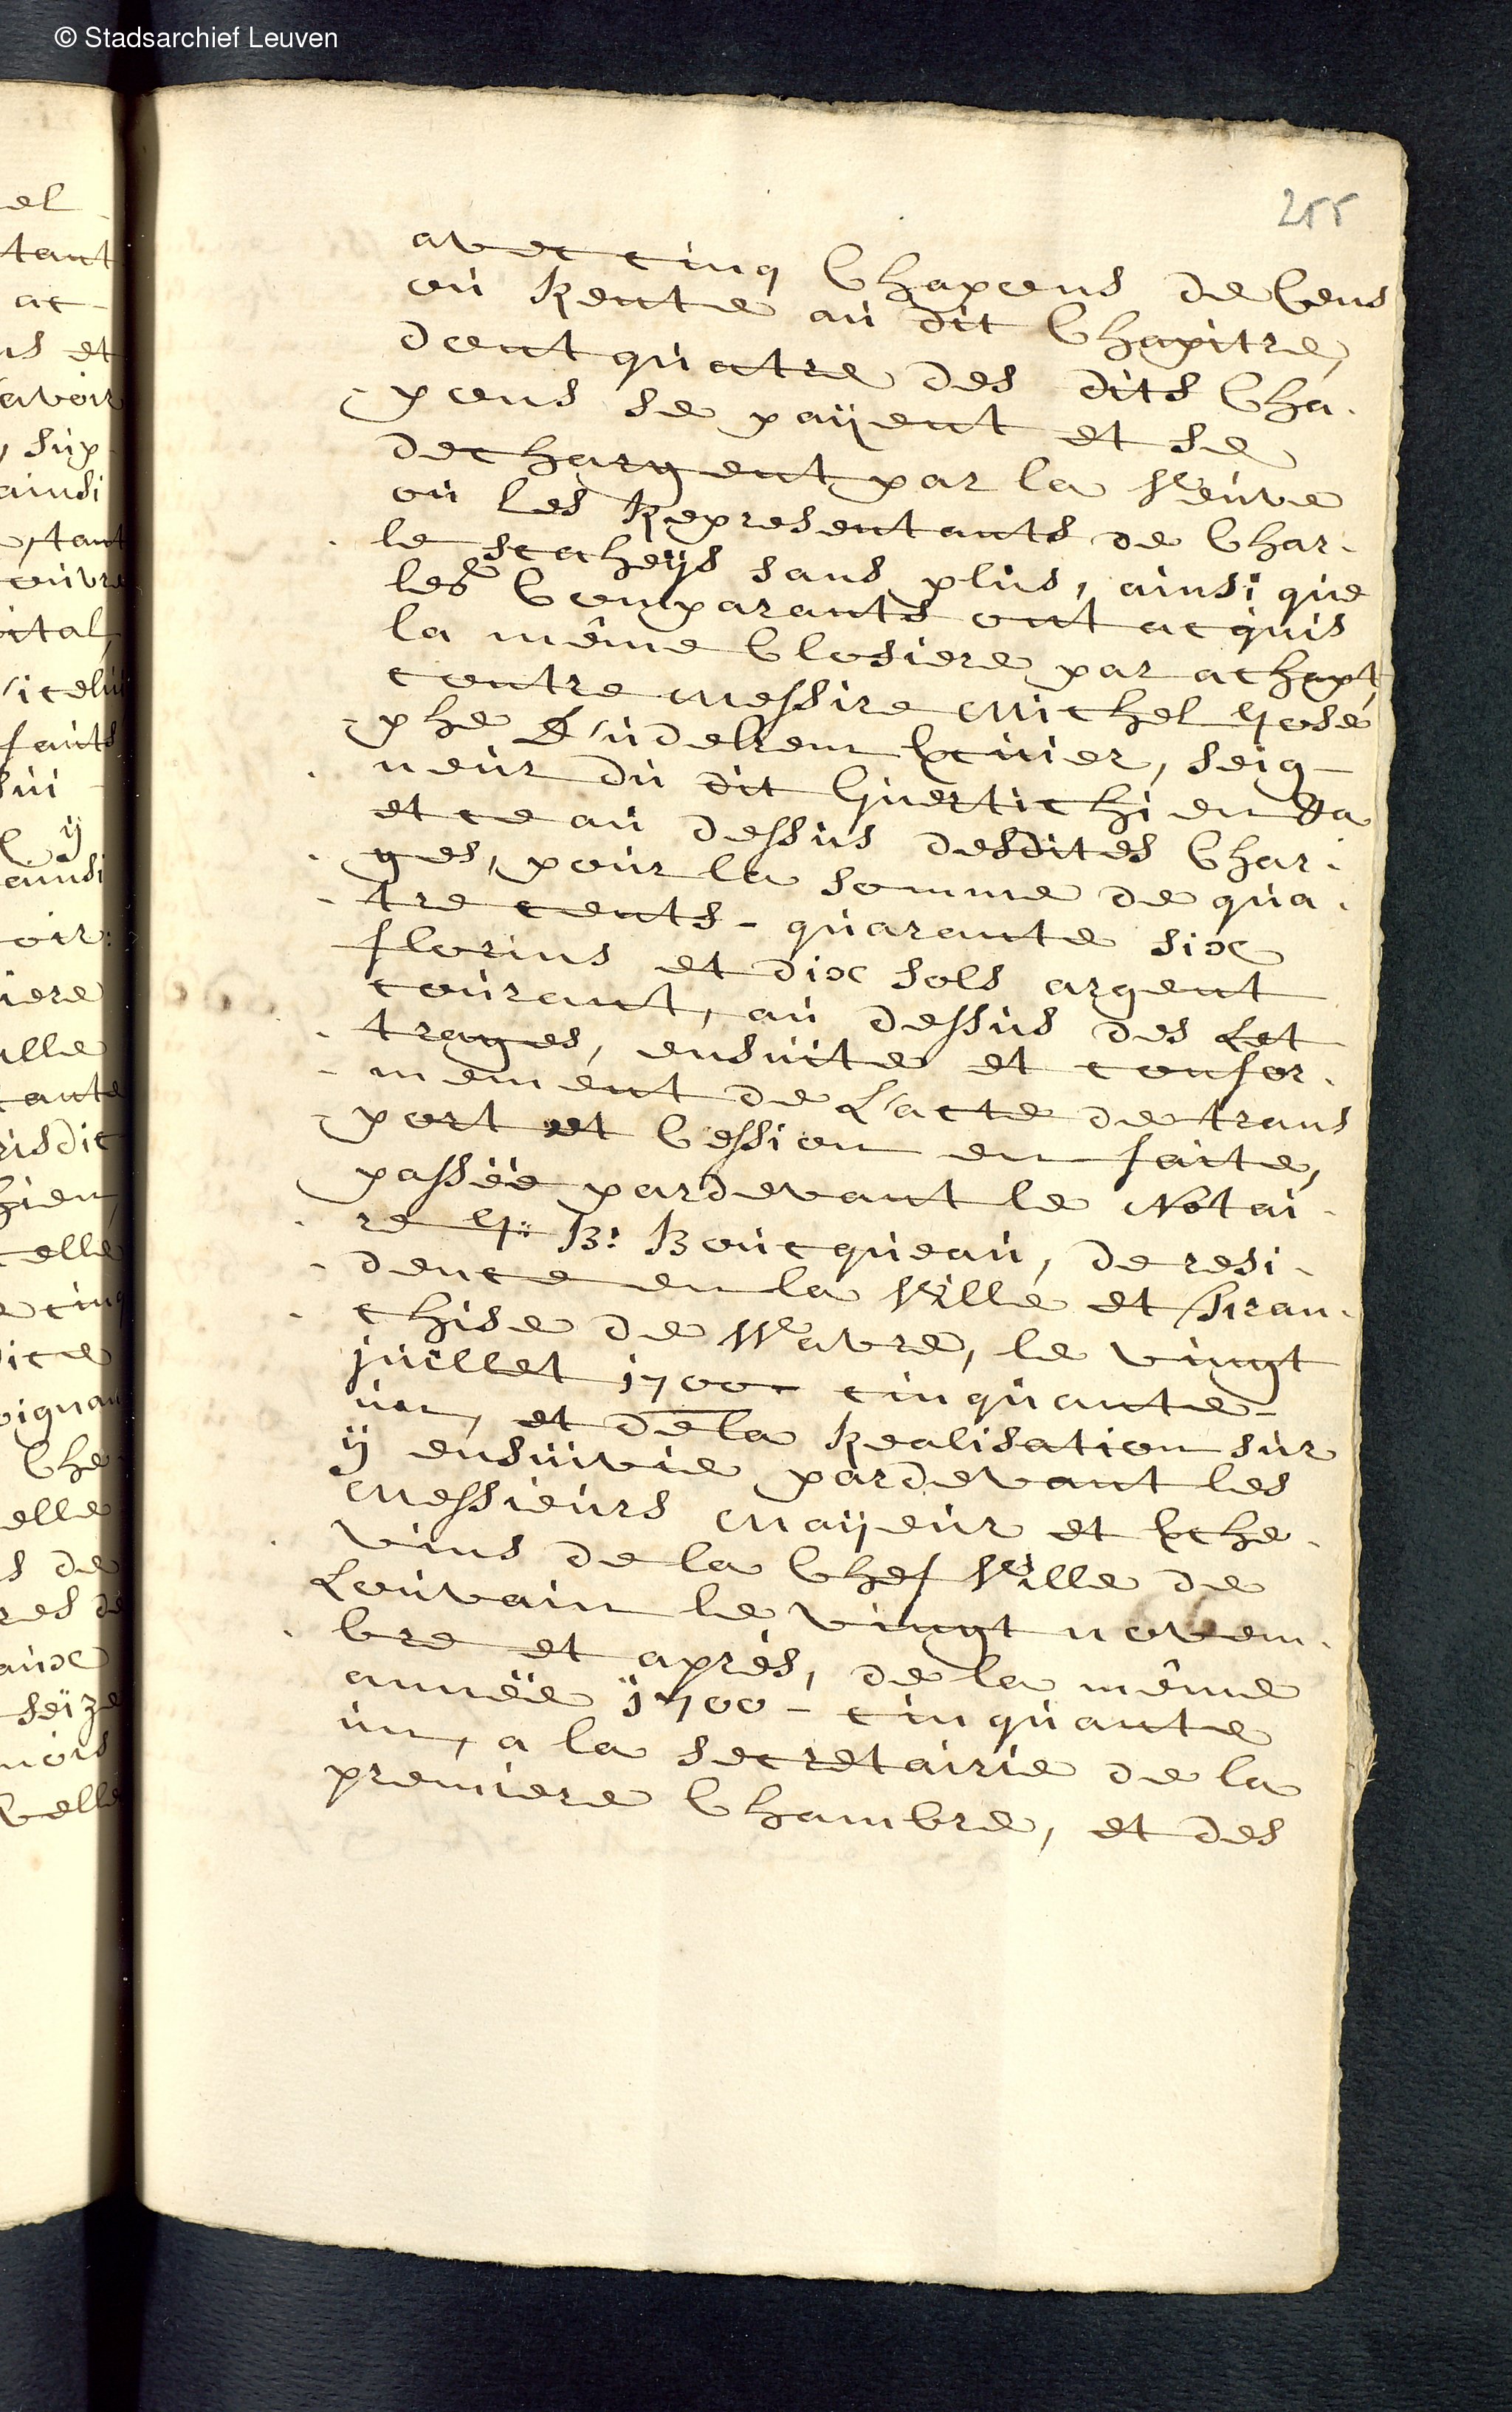 © Stadsarchief Leuven
255
avec cinq Chapons de Cens
ou Rente au dit Chapitre,
dont quatre des dits Cha-
-pons se paÿent et se
dechargent par la Veuve
ou les Representants de Char-
le stacheÿs sans plus, ainsi que
les Comparants ont acquis
la même Closiere par achapt
contre messire Michel Jose
-phe D'udekem Ecuier, seig-
neur du dit Guertichien &a
et ce au dessus desdites Char-
ges, pour la somme de qua-
-tre cents - quarante six
florins et dix sols argent
courant, au dessus des Let
-trages, ensuite et confor-
-mement de L'acte de trans
-port et Cession en faite,
passée pardevant le Notai-
re J: B: Boucqueau, de resi-
-dence en la Ville et Fran-
chise de Wavre, le vingt
juillet 1700 - cinquante-
un, et de la Realisation sur
ÿ ensuivie pardevant les
Messieurs Maÿeur et Eche-
vins de la Chef Ville de
Louvain le vingt novem-
bre et après, de la même
année 1700 - cinquante
un, a la secretairie de la
premiere Chambre, et des